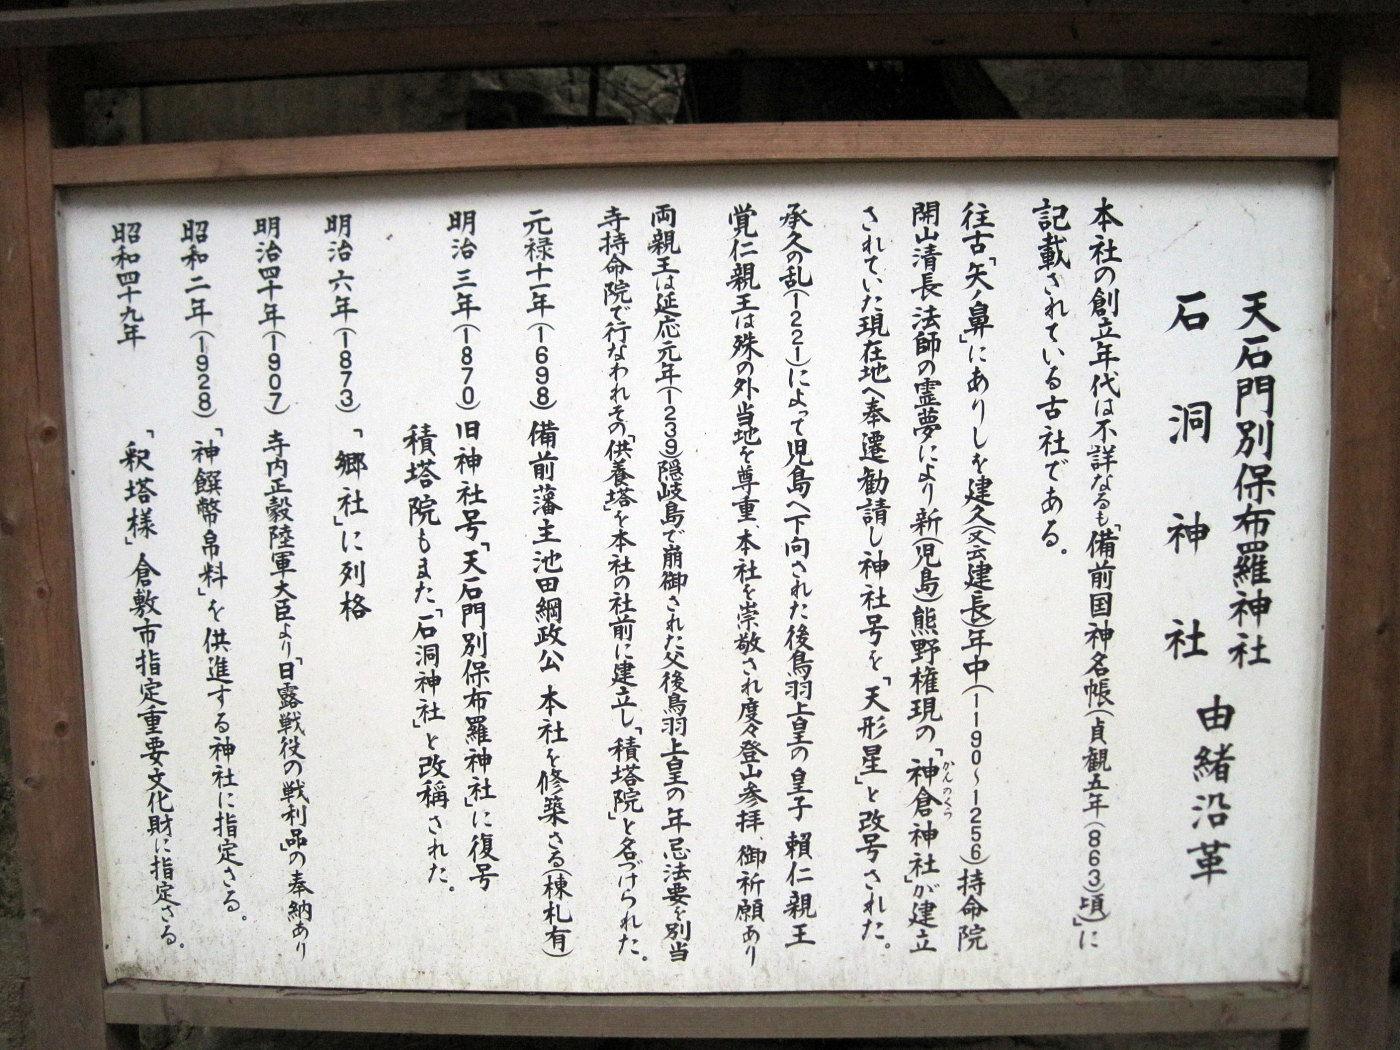 天石門別保布羅神社
石洞神社
由緒沿革
本社の創立年代は不詳なるも「備前国神名帳(貞観五年(863)頃)」に
記載されている古社である。
往古「矢ノ鼻」にありしを建久(又云建長)年中(1190〜1256)持命院
開山清長法師の霊夢により新(児島)熊野権現の「神倉神社」が建立
かんのくつ
されていた現在地へ奉遷勧請し神社号を「天形星」と改号された。
承久の乱(1221)によって児島へ下向された後鳥羽上皇の皇子 頼仁親王
覚仁親王は殊の外当地を尊重、本社を崇敬され度々登山参拝、御祈願あり
両親王は延応元年(1239)隠岐島で崩御された父後鳥羽上皇の年忌法要を別当
寺持命院で行なわれその「供養塔」を本社の社前に建立し「積塔院」と名づけられた。
元禄十一年(1698) 備前藩主池田綱政公 本社を修築さる(棟札有)
明治三年(1870) 旧神社号「天石門別保布羅神社」に復号
積塔院もまた「石洞神社」と改称された。
明治六年(1873) 「郷社」に列格
明治四十年(1907) 寺内正毅陸軍大臣より「日露戦役の戦利品」の奉納あり
昭和二年(1928) 「神饌幣帛料」を供進する神社に指定さる。
昭和四十九年 「釈塔様」倉敷市指定重要文化財に指定さる。